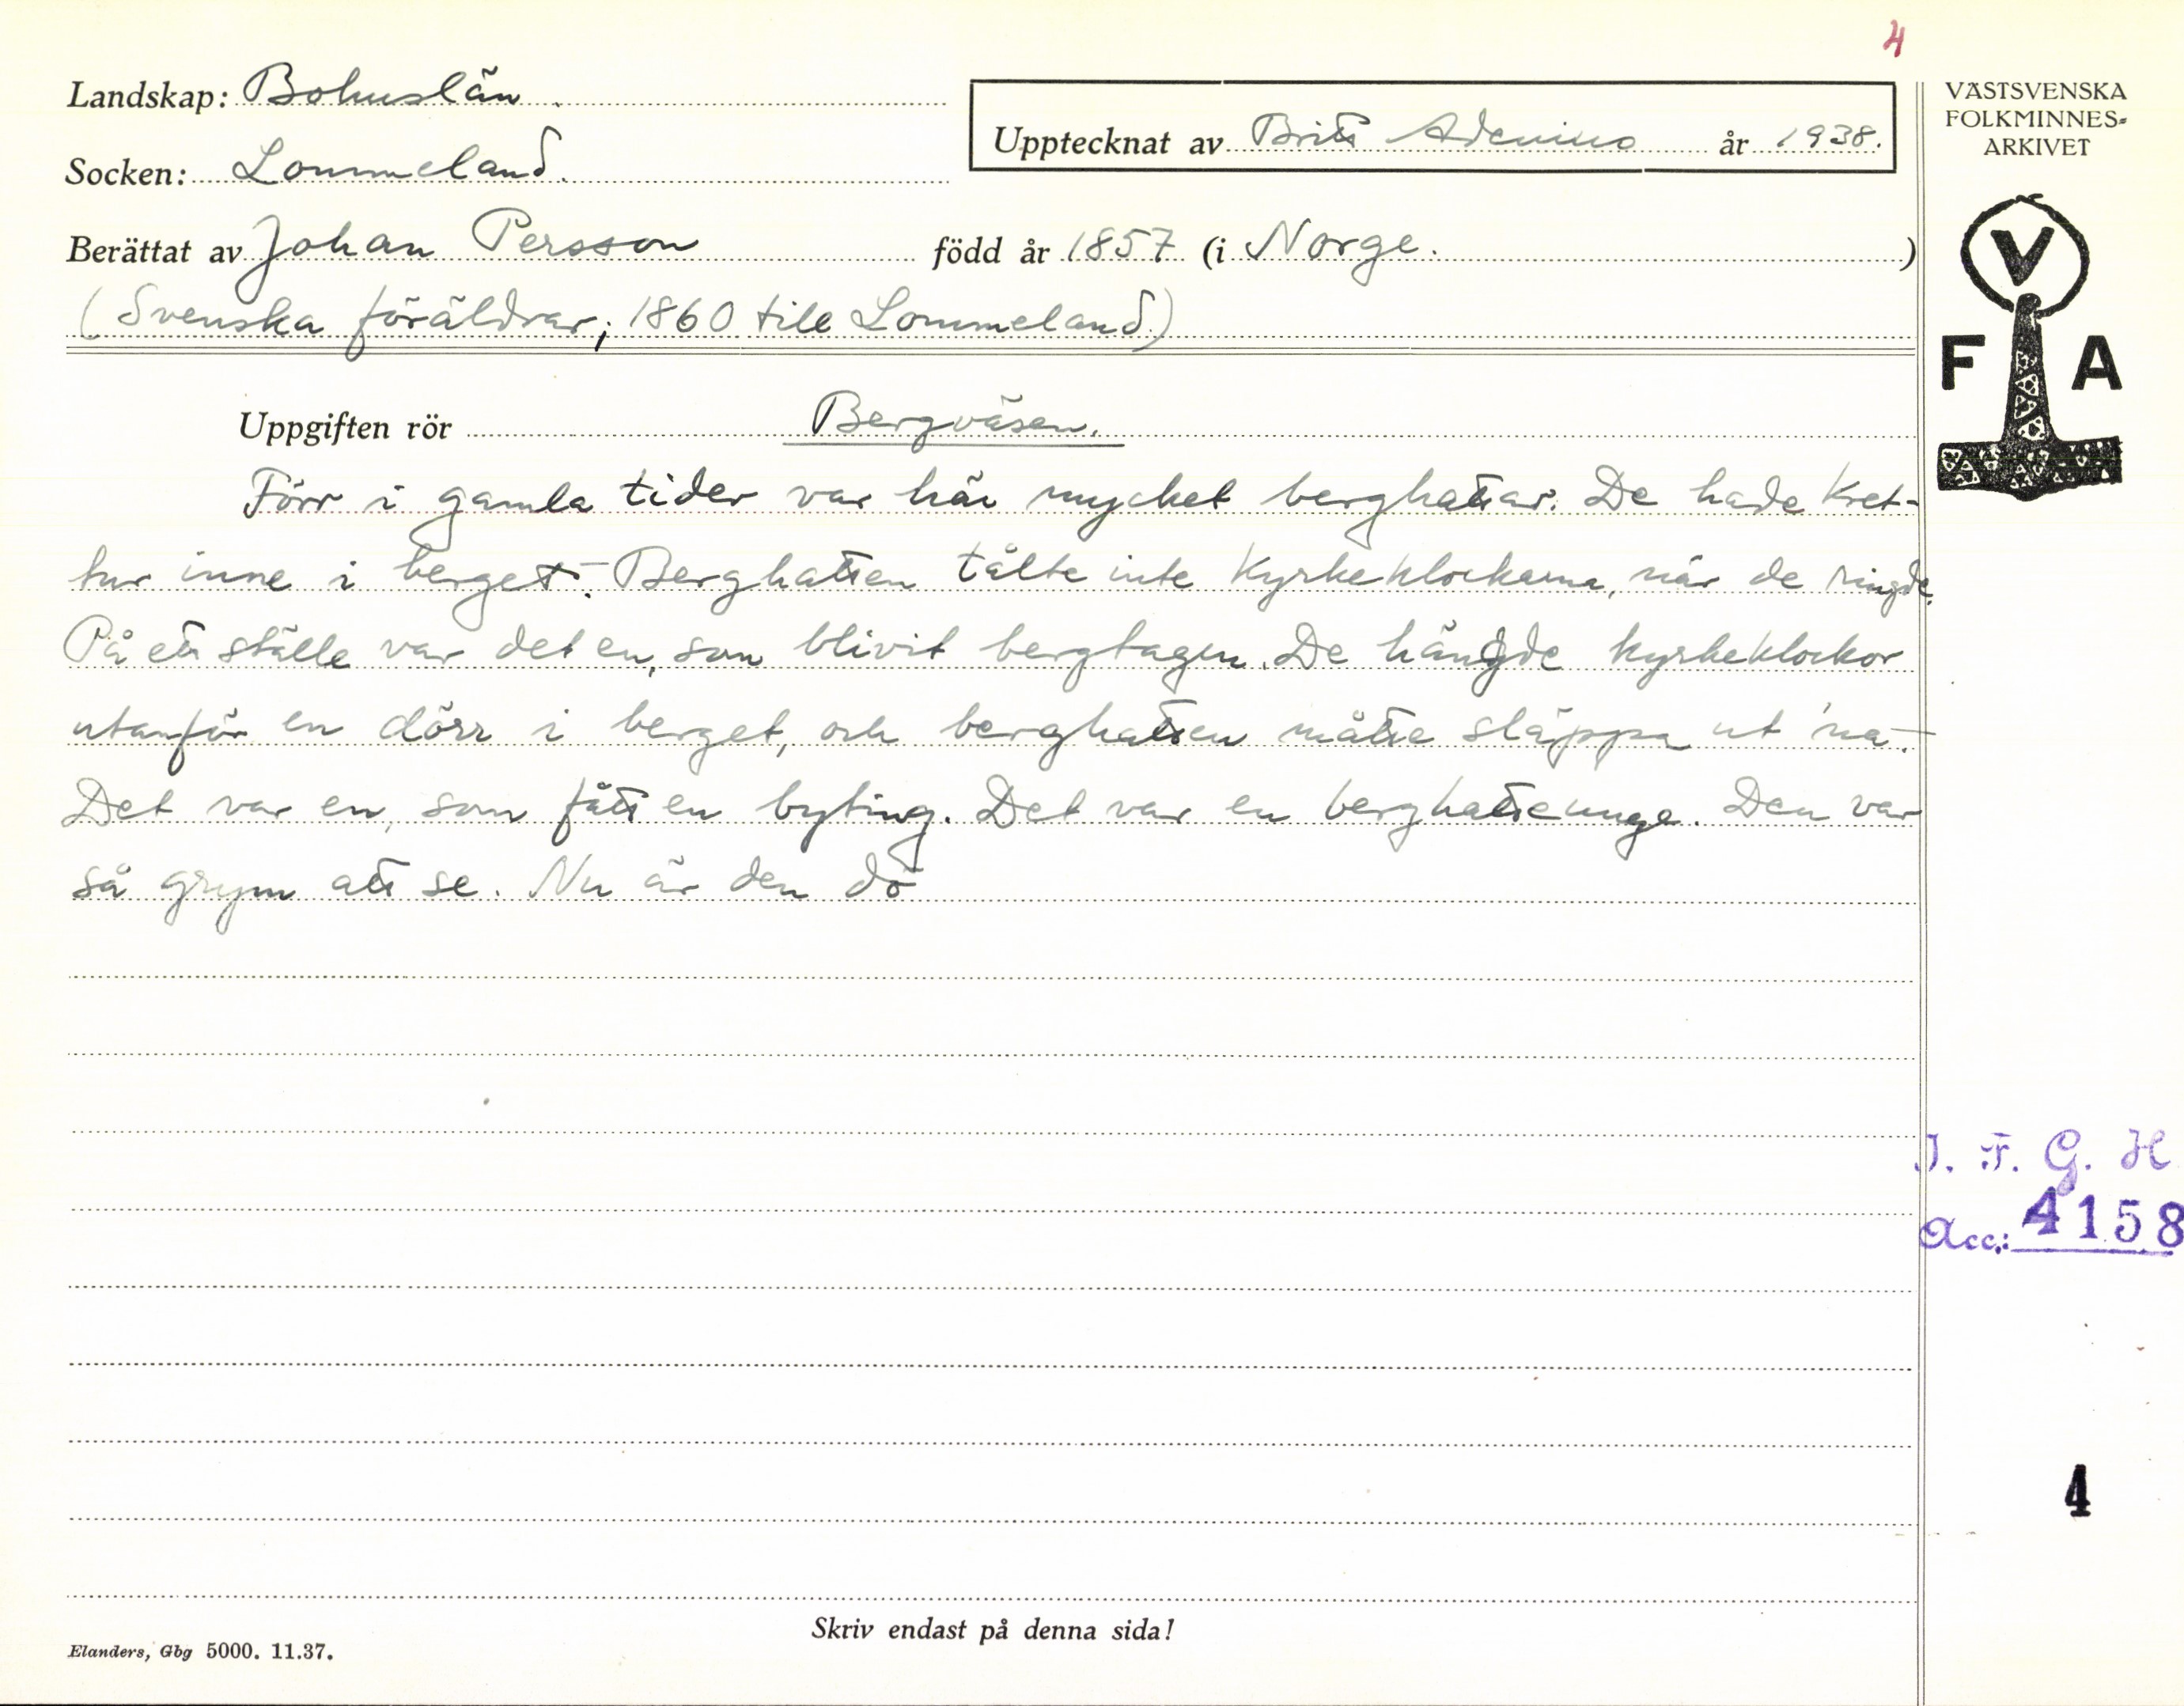 4
Landskap: Bohuslän.
Socken: Lommeland.
Upptecknat av Britt år 1938.
Berättat av Johan Persson född år 1857 (i Norge.)
(Svenska föräldrar; 1860 till Lommeland.)
VÄSTSVENSKA
FOLKMINNES-
ARKIVET
V
F A
Uppgiften rör Bergväsen.
Förr i gamla tider var här mycket berghattar. De hade kret-
tur inne i berget. - Berghatten tålte inte kyrkeklockarna, när de ringde.
På ett ställe var det en, som blivit bergtagen. De hängde kyrkeklockor
utanför en dörr i berget, och berghatten måtte släppa ut 'na. -
Det var en, som fått en byting. Det var en berghatteunge. Den var
så grym att se. Nu är den dö
I. F. G. H
Acc.: 4158
4
Skriv endast på denna sida!
Elanders, Gbg 5000. 11.37.